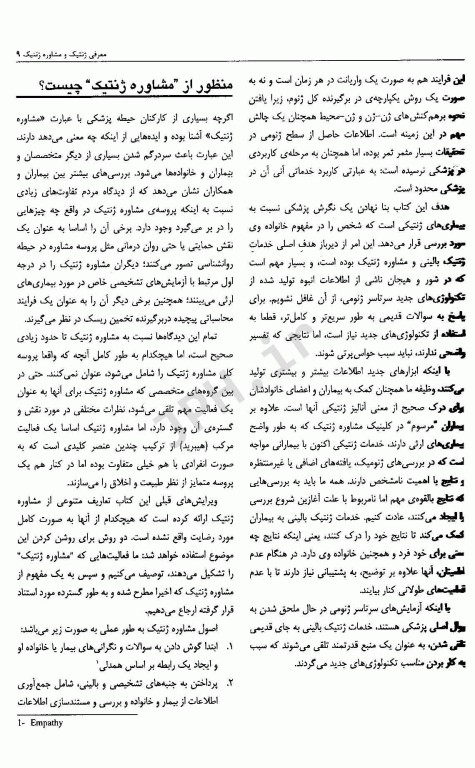 معرفی ژنتیک و مشاوره ژنتیک ۹
این فرایند هم به صورت یک واریانت در هر زمان است و نه به
صورت یک روش یکپارچه‌ی در برگیرنده کل ژنوم، زیرا یافتن
نحوه برهم‌کنش‌های ژن-ژن و ژن-محیط همچنان یک چالش
مهم در این زمینه است. اطلاعات حاصل از سطح ژنومی در
تحقیقات بسیار مثمر ثمر بوده، اما همچنان به مرحله‌ی کاربردی
در پزشکی نرسیده است؛ به عبارتی کاربرد خدماتی آنی آن در
پزشکی محدود است.
هدف این کتاب بنا نهادن یک نگرش پزشکی نسبت به
بیماری‌های ژنتیکی است که شخص را در مفهوم خانواده وی
مورد بررسی قرار می‌دهد. این امر از دیرباز هدف اصلی خدمات
ژنتیک بالینی و مشاوره ژنتیک بوده است، و بسیار مهم است
که در شور و هیجان ناشی از اطلاعات انبوه تولید شده از
تکنولوژی‌های جدید سرتاسر ژنومی، از آن غافل نشویم. برای
پاسخ به سوالات قدیمی به طور سریع‌تر و کامل‌تر، قطعا به
استفاده از تکنولوژی‌های جدید نیاز است، اما نتایجی که تفسیر
واضحی ندارند، نباید سبب حواس‌پرتی شوند.
با اینکه ابزارهای جدید اطلاعات بیشتر و بیشتری تولید
می‌کنند، وظیفه ما همچنان کمک به بیماران و اعضای خانواد‌شان
برای درک صحیح از معنی آنالیز ژنتیکی آنها است. علاوه بر
بیماران "مرسوم" در کلینیک مشاوره ژنتیک که به طور واضح
بیماری‌های ارثی دارند، خدمات ژنتیکی اکنون با بیمارانی مواجه
است که در بررسی‌های ژنومیک، یافته‌های اضافی یا غیرمنتظره
و نتایج با اهمیت نامشخص دارند. همه ما باید به بررسی‌هایی
که نتایج بالقوه‌ی مهم اما نامربوط با علت آغازین شروع بررسی
را ایجاد می‌کنند، عادت کنیم. خدمات ژنتیک بالینی به بیماران
کمک می‌کند تا نتایج خود را درک کنند، یعنی اینکه نتایج چه
معنی برای خود فرد و همچنین خانواده وی دارد. در هنگام عدم
اطمینان، آنها علاوه بر توضیح، به پشتیبانی نیاز دارند تا با عدم
قطعیت‌های طولانی کنار بیایند.
با اینکه آزمایش‌های سرتاسر ژنومی در حال ملحق شدن به
روال اصلی پزشکی هستند، خدمات ژنتیک بالینی به جای قدیمی
تلقی شدن، به عنوان یک منبع قدرتمند تلقی می‌شوند که سبب
به کار بردن مناسب تکنولوژی‌های جدید می‌گردند.
منظور از "مشاوره ژنتیک" چیست؟
اگرچه بسیاری از کارکنان حیطه پزشکی با عبارت «مشاوره
ژنتیک» آشنا بوده و ایده‌هایی از اینکه چه معنی می‌دهد دارند،
این عبارت باعث سردرگم شدن بسیاری از دیگر متخصصان و
بیماران و خانواده‌ها می‌شود. بررسی‌های بیشتر بین بیماران و
همکاران نشان می‌دهد که از دیدگاه مردم تفاوت‌های زیادی
نسبت به اینکه پروسه‌ی مشاوره ژنتیک در واقع چه چیزهایی
را در بر می‌گیرد وجود دارد. برخی آن را اساسا به عنوان یک
نقش حمایتی یا حتی روان درمانی مثل پروسه مشاوره در حیطه
روانشناسی تصور می‌کنند؛ دیگران مشاوره ژنتیک را در درجه
اول مرتبط با آزمایش‌های تشخیصی خاص در مورد بیماری‌های
ارثی می‌بینند؛ همچنین برخی دیگر آن را به عنوان یک فرایند
محاسباتی پیچیده دربرگیرنده تخمین ریسک در نظر می‌گیرند.
تمام این دیدگاه‌ها نسبت به مشاوره ژنتیک تا حدود زیادی
صحیح است، اما هیچکدام به طور کامل آنچه که واقعا پروسه
کلی مشاوره ژنتیک را شامل می‌شود، عنوان نمی‌کنند. حتی در
بین گروه‌های متخصصی که مشاوره ژنتیک برای آنها به عنوان
یک فعالیت مهم تلقی می‌شود، نظرات مختلفی در مورد نقش و
گستره‌ی آن وجود دارد، اما مشاوره ژنتیک اساسا یک فعالیت
مرکب (هیبرید) از ترکیب چندین عنصر کلیدی است که به
صورت انفرادی با هم خیلی متفاوت بوده اما در کنار هم یک
پروسه متمایز از نظر طبیعت و اخلاق را می‌سازند.
ویرایش‌های قبلی این کتاب تعاریف متنوعی از مشاوره
ژنتیک ارائه کرده است که هیچکدام از آنها به صورت کامل
مورد رضایت واقع نشده است. دو روش برای روشن کردن این
موضوع استفاده خواهد شد: ما فعالیت‌هایی که "مشاوره ژنتیک"
را تشکیل می‌دهند، توصیف می‌کنیم و سپس به یک مفهوم از
مشاوره ژنتیک که اخیرا مطرح شده و به طور گسترده مورد استناد
قرار گرفته ارجاع می‌دهیم.
اصول مشاوره ژنتیک به طور عملی به صورت زیر می‌باشد:
۱. ابتدا گوش دادن به سوالات و نگرانی‌های بیمار یا خانواده او
و ایجاد یک رابطه بر اساس همدلی¹
۲. پرداختن به جنبه‌های تشخیصی و بالینی، شامل جمع‌آوری
اطلاعات از بیمار و خانواده و بررسی و مستندسازی اطلاعات
1- Empathy